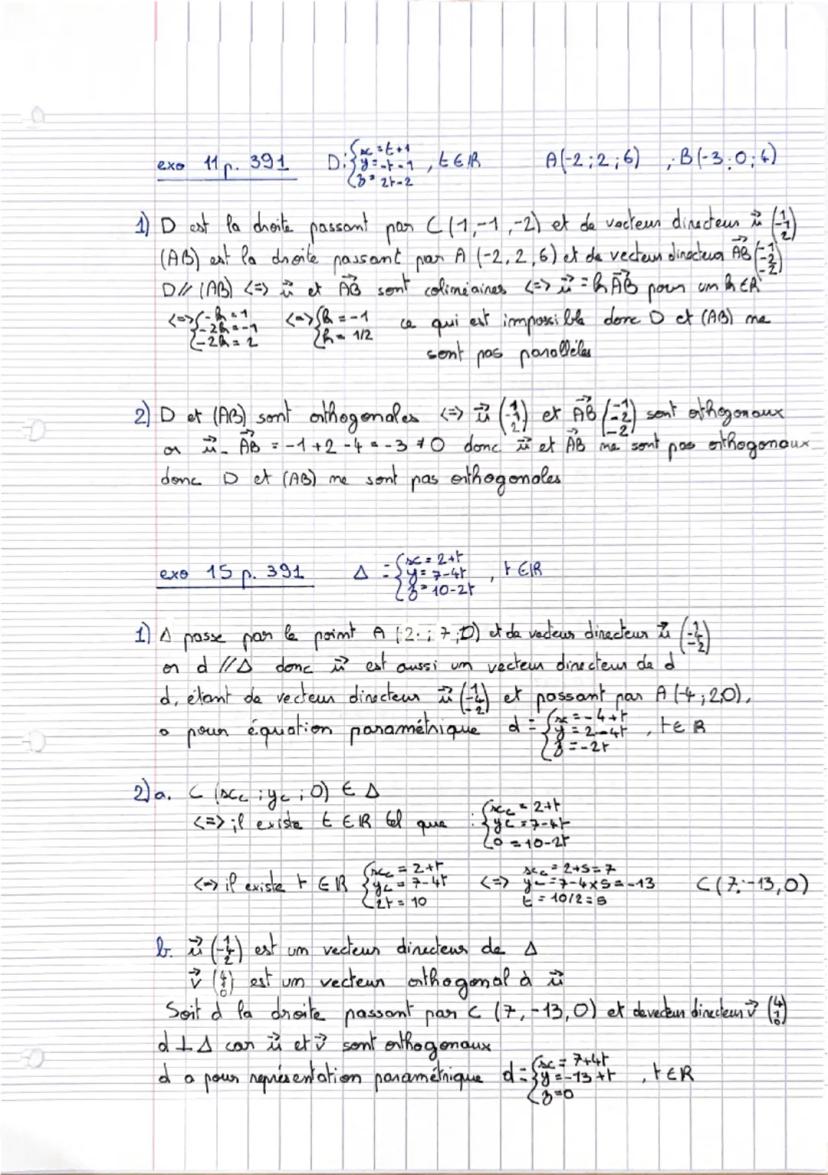 exo 11 p. 391 D: { x = t+1 ; y = -t-1 ; z = 2t-2 , t ∈ ℝ A(-2 ; 2 ; 6) , B(-3 ; 0 ; 4)
1) D est la droite passant par C (1, -1, -2) et de vecteur directeur u⃗ (1 -1 2)
(AB) est la droite passant par A (-2, 2, 6) et de vecteur directeur AB⃗ (-1 -2 -2)
D // (AB) <=> u⃗ et AB⃗ sont colinéaires <=> u⃗ = k AB⃗ pour un k ∈ ℝ
<=> { -k = 1 ; -2k = -1 ; -2k = 2 <=> { k = -1 ; k = 1/2 ce qui est impossible donc D et (AB) ne
sont pas parallèles
2) D et (AB) sont orthogonales <=> u⃗ (1 -1 2) et AB⃗ (-1 -2 -2) sont orthogonaux
or u⃗ . AB⃗ = -1 + 2 - 4 = -3 ≠ 0 donc u⃗ et AB⃗ ne sont pas orthogonaux
donc D et (AB) ne sont pas orthogonales
exo 15 p. 391 Δ = { x = 2+t ; y = 7-4t ; z = 10-2t , t ∈ ℝ
1) Δ passe par le point A (2 ; 7, D) et de vecteur directeur u⃗ (1 -4 -2)
or d // Δ donc u⃗ est aussi un vecteur directeur de d
d, étant de vecteur directeur u⃗ (1 -4 -2) et passant par A (-4 ; 2,0),
a pour équation paramétrique d = { x = -4+t ; y = 2-4t ; z = -2t , t ∈ ℝ
2) a. C (xc ; yc ; 0) ∈ Δ
<=> il existe t ∈ ℝ tel que : { xc = 2+t ; yc = 7-4t ; 0 = 10-2t
<=> il existe t ∈ ℝ { xc = 2+t ; yc = 7-4t ; 2t = 10 <=> xc = 2+5 = 7 ; yc = 7-4x5 = -13 ; t = 10/2 = 5 C (7 ; -13, 0)
b. u⃗ (1 -4 2) est un vecteur directeur de Δ
v⃗ (4 1 0) est un vecteur orthogonal à u⃗
Soit d la droite passant par C (7, -13, 0) et de vecteur directeur v⃗ (4 1 0)
d ⊥ Δ car u⃗ et v⃗ sont orthogonaux
d a pour représentation paramétrique d = { x = 7+4t ; y = -13+t ; z = 0 , t ∈ ℝ